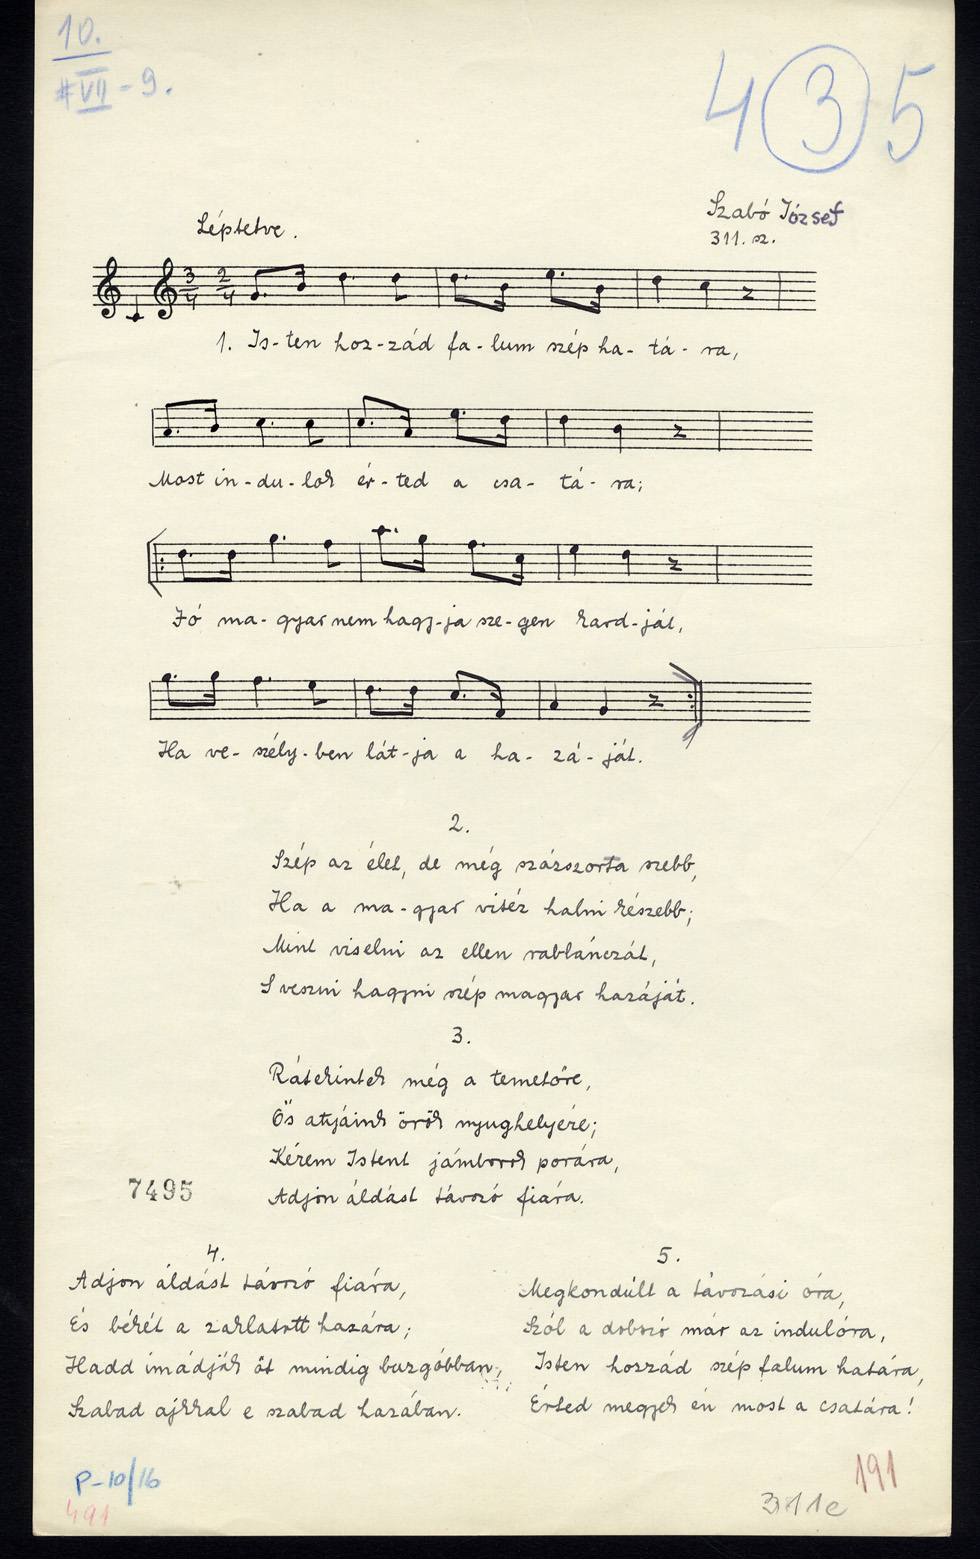 10.
VII - 9.
4 3 5
Szabó József
311. sz.
Léptetve.
3 2
4 4
1. Is-ten hoz-zád fa-lum szép ha-tá-ra,
Most in-du-lok ér-ted a csa-tá-ra;
Jó ma-gyar nem hagy-ja sze-gen kard-ját,
Ha ve-szély-ben lát-ja a ha-zá-ját.
2.
Szép az élet, de még százszorta szebb,
Ha a ma-gyar vitéz halni készebb;
Mint viselni az ellen rablánczát,
S veszni hagyni szép magyar hazáját.
3.
Rátekintek még a temetőre,
Ős atyáink örök nyughelyére;
Kérem Istent jámborok porára,
7495
Adjon áldást távozó fiára.
4.
Adjon áldást távozó fiára,
És békét a zaklatott hazára;
Hadd imádják őt mindig buzgóbban,
Szabad ajkkal e szabad hazában.
5.
Megkondúlt a távozási óra,
Szól a dobszó már az indulóra,
Isten hozzád szép falum határa,
Érted megyek én most a csatára!
P-10/16
491
191
311e